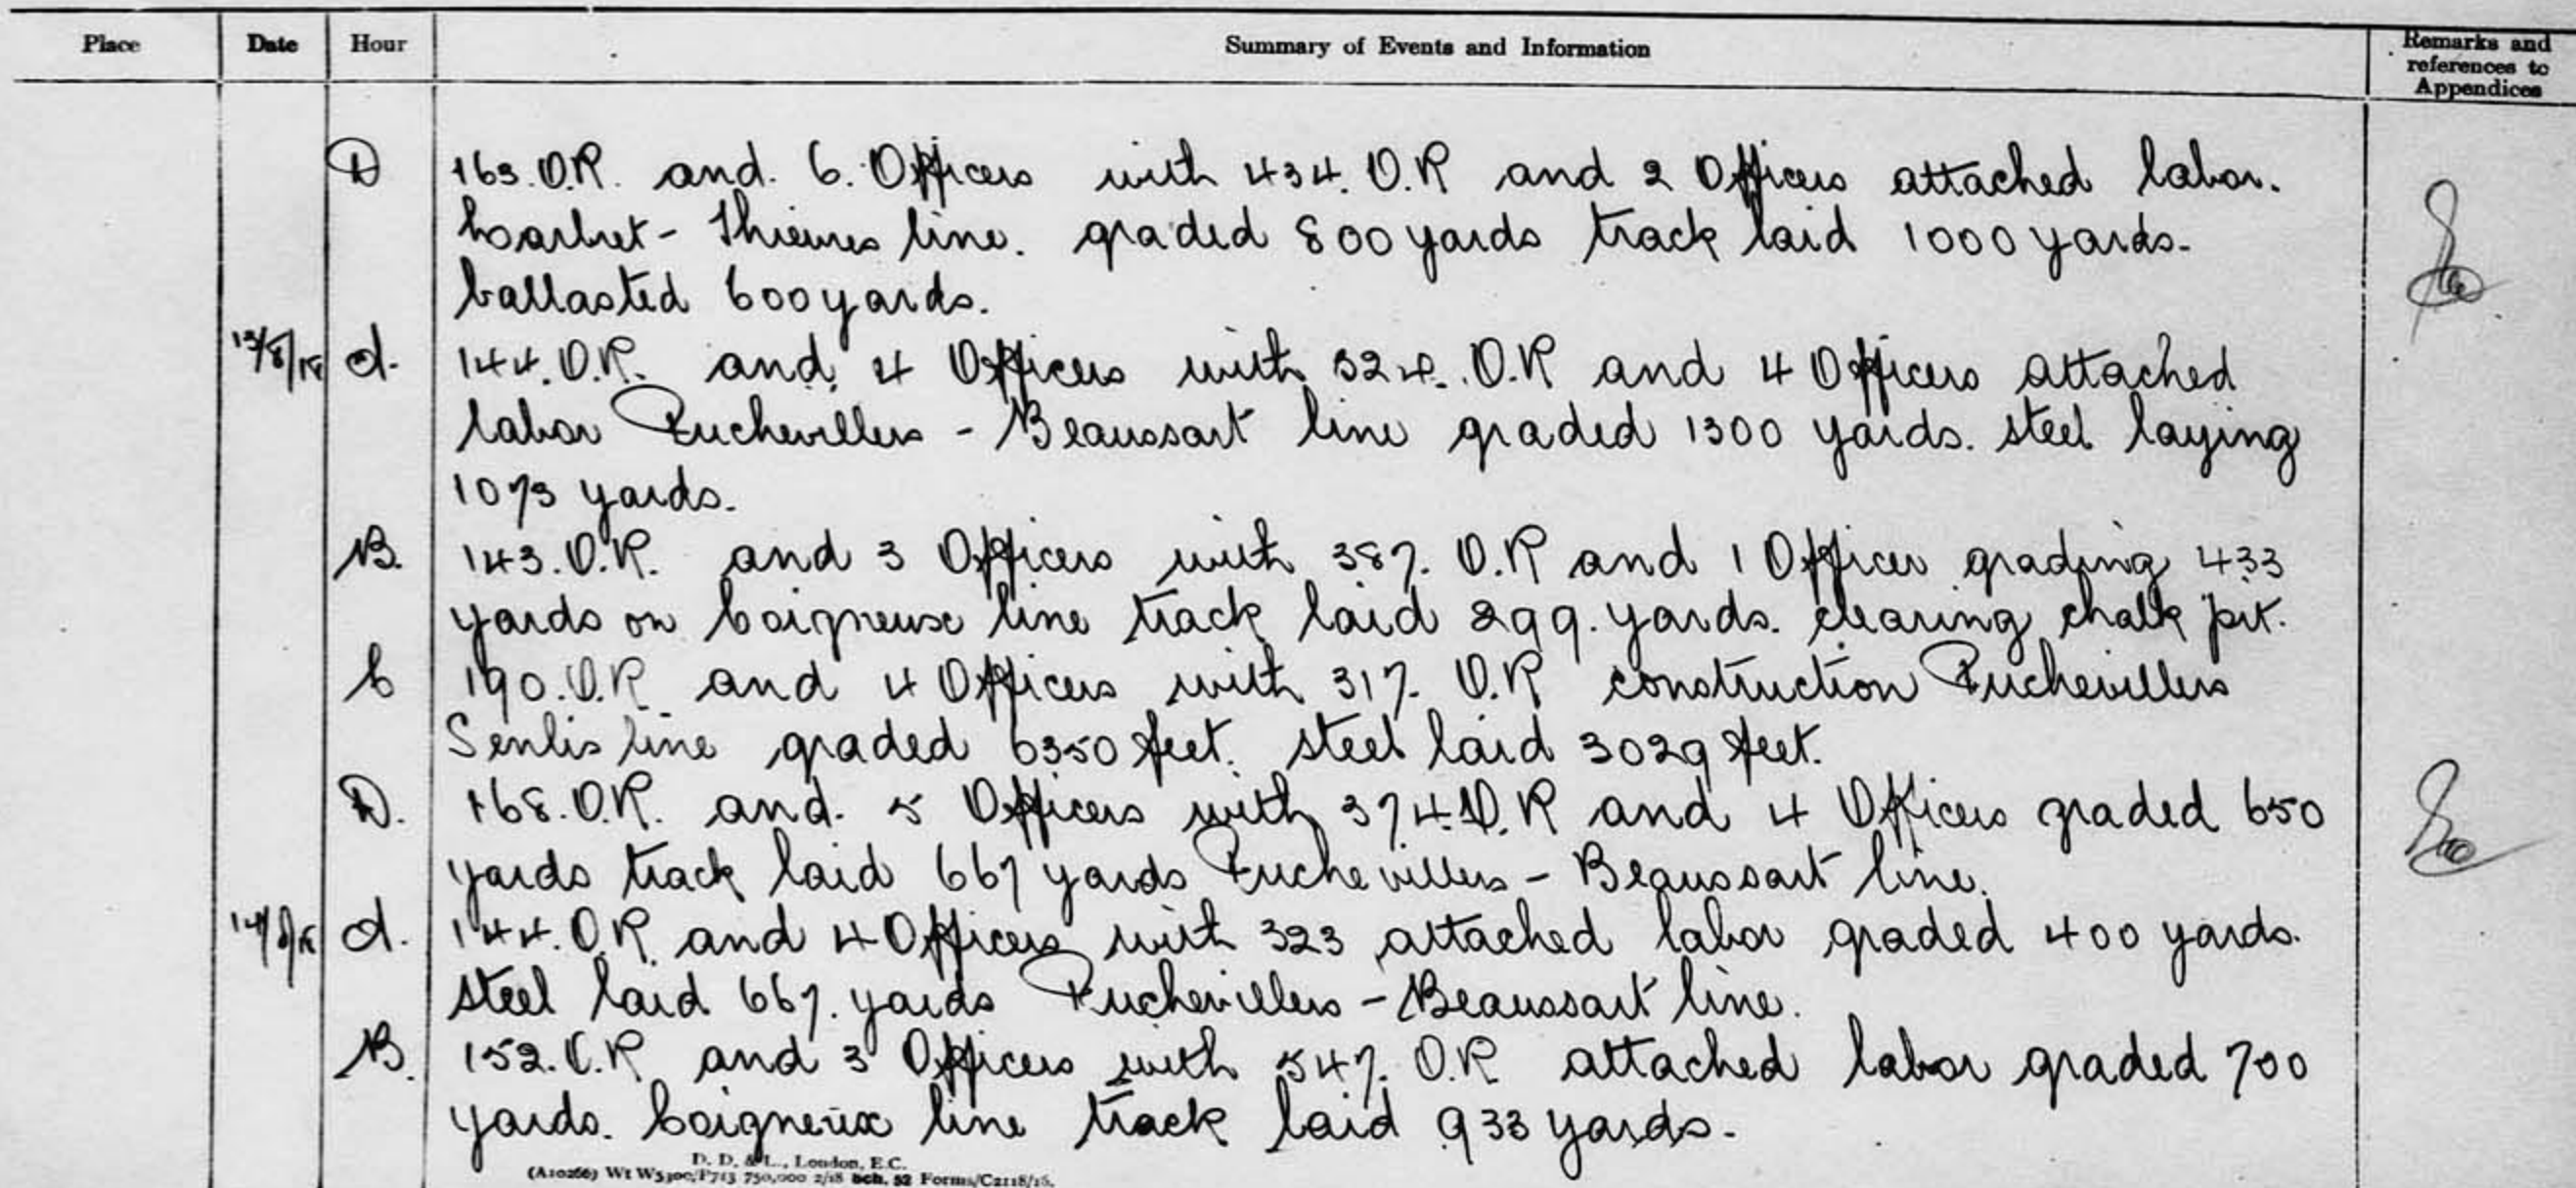 Place Date Hour Summary of Events and Information Remarks and references to Appendices
D 163. O.R. and. 6. Officers with 434. O.R and 2 Officers attached labor.
Warlret - Thievres line. graded 800 yards track laid 1000 yards.
ballasted 600 yards.
13/8/18 A. 144. O.R. and 4 Officers with 324. O.R and 4 Officers attached
labor Puchevillers - Beaussart line graded 1300 yards. steel laying
1073 yards.
B. 143. O.R. and 3 Officers with 387. O.R and 1 Officer grading 433
yards on Coigneuse line track laid 299. yards. clearing chalk pit.
C 190. O.R and 4 Officers with 317. O.R construction Puchevillers
Senlis line graded 6350 feet. steel laid 3029 feet.
D. 168. O.R. and. 5 Officers with 374. O.R and 4 Officers graded 650
yards track laid 667 yards Puchevillers - Beaussart line.
14/8/18 A. 144. O.R. and 4 Officers with 323 attached labor graded 400 yards.
steel laid 667. yards Puchevillers - Beaussart line.
B. 152. O.R and 3 Officers with 547. O.R attached labor graded 700
yards. Coigneux line track laid 933 yards.
D. D. & L., London, E.C.
(A10266) Wt W5300/P713 750,000 2/18 Sch. 52 Forms/C2118/16.